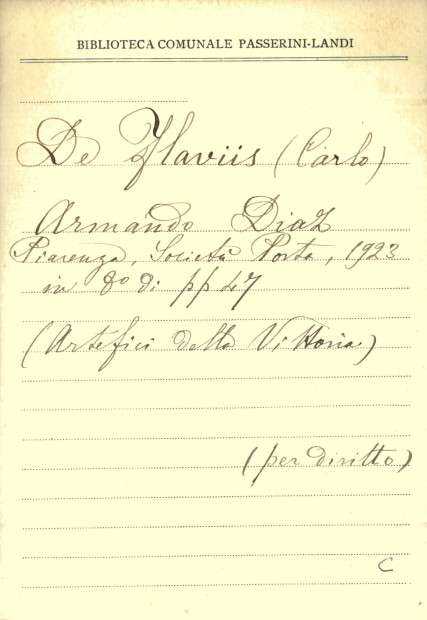 BIBLIOTECA COMUNALE PASSERINI-LANDI
De Flaviis (Carlo)
Armando Diaz
Piacenza, Società Porta, 1923
in 8º di pp 47
(Artefici della Vittoria)
(per diritto)
C